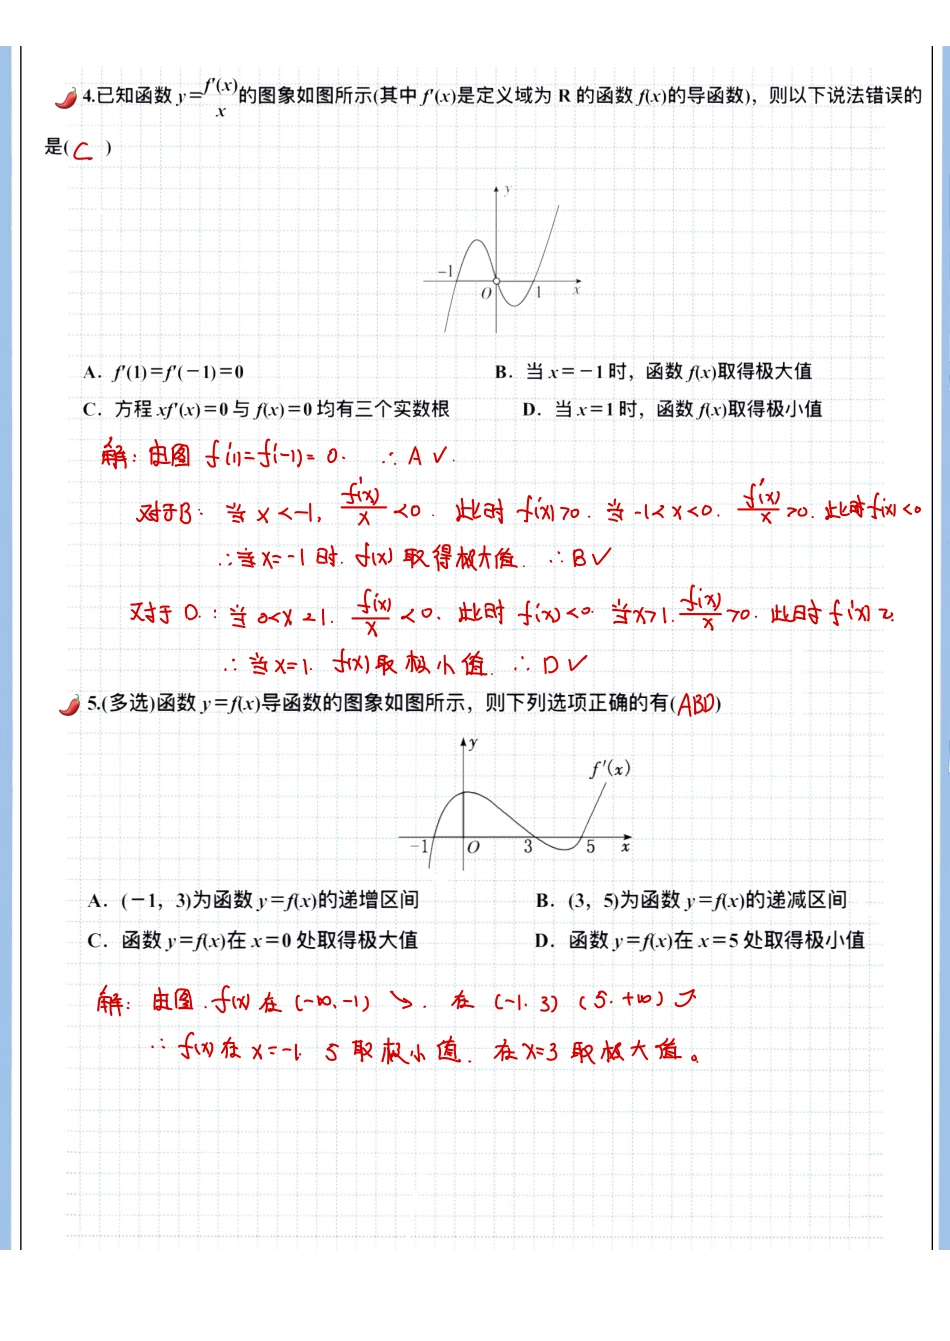 4.已知函数 y=f′(x)/x的图象如图所示(其中 f′(x)是定义域为 R 的函数 f(x)的导函数)，则以下说法错误的
是( C )
y
−1
O 1 x
A．f′(1)=f′(−1)=0 B．当 x=−1 时，函数 f(x)取得极大值
C．方程 xf′(x)=0 与 f(x)=0 均有三个实数根 D．当 x=1 时，函数 f(x)取得极小值
解: 由图 f′(1)=f′(-1)=0. ∴A✓.
对于B: 当 x<-1, f′(x)/x <0. 此时 f′(x)>0. 当 -1<x<0. f′(x)/x >0. 此时 f′(x)<0
∴当x=-1时. f(x)取得极大值. ∴B✓
对于D.: 当 0<x<1. f′(x)/x <0. 此时 f′(x)<0. 当x>1. f′(x)/x >0. 此时 f′(x)>0.
∴当x=1. f(x)取极小值. ∴D✓
5.(多选)函数 y=f(x)导函数的图象如图所示，则下列选项正确的有( ABD )
y
f′(x)
−1 O 3 5 x
A．(−1，3)为函数 y=f(x)的递增区间 B．(3，5)为函数 y=f(x)的递减区间
C．函数 y=f(x)在 x=0 处取得极大值 D．函数 y=f(x)在 x=5 处取得极小值
解: 由图. f(x)在 (-∞,-1) ↘. 在 (-1.3) (5.+∞) ↗
∴ f(x)在 x=-1. 5 取极小值. 在x=3 取极大值。